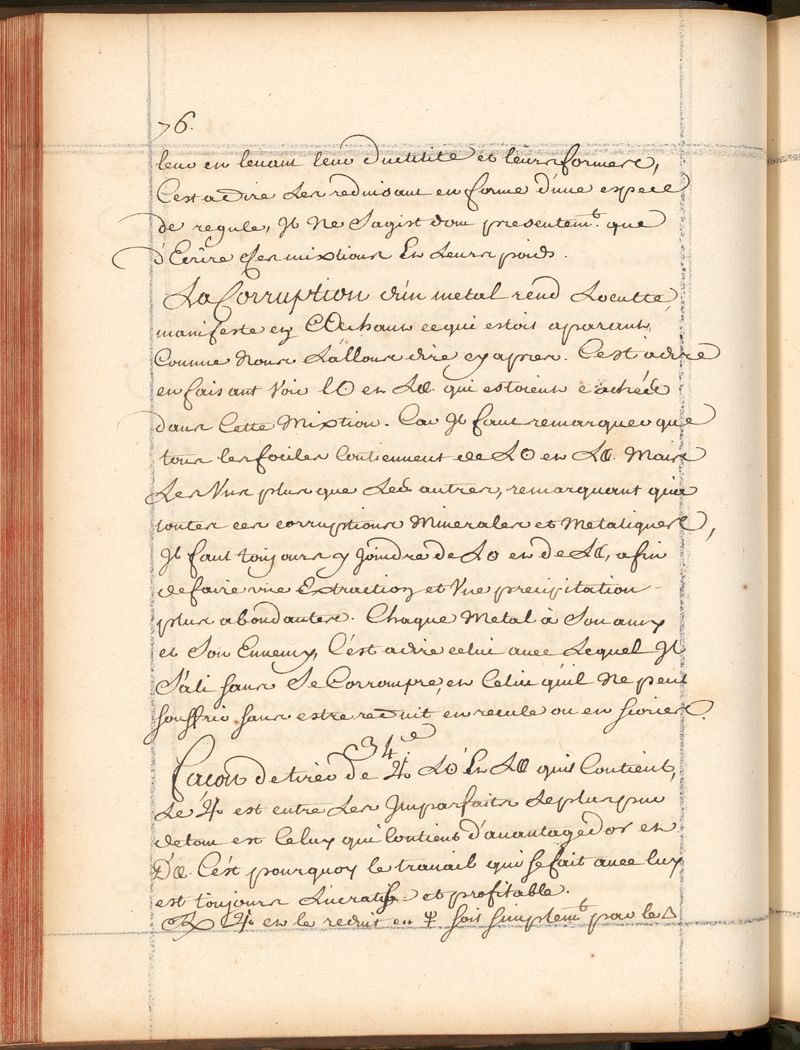 76.
leur en levant leur ductilité et leurs formes,
C'est a dire Les reduisant en forme d'une espece
de regule, Il Ne S'agist donc presentem.t que
d'Ecrire Ces mixtions En Leurs poids.
La Corruption d'un metal rend L'occulte
manifeste en Cachant ce qui estoit aparant,
Comme Nous L'allons dire cy apres. C'est a dire
en faisant Voir l'☉ en La ☾. qui estoient cachée
dans Cette Mixtion. Car Il faut remarquer que
tous les fociles Contiennent de L☉ en La ☾. Mais
Les Vns plus que Les autres, remarquant qu'a
toutes ces corruptions Minerales et Metaliques,
Il faut toujours y Joindre de L☉ en de La ☾, afin
de faire vne Extraction et Vne precipitation
plus abondantes. Chaque Metal à Son amy
et Son Ennemy, C'est a dire celui avec Lequel Il
S'ali sans Se Corrompre, en Celui qu'il Ne peut
souffrir sans estre reduit en recule ou en scories.
34.e
Façon de tirer de ♃. L☉ En La ☾ quil Contient,
Le ♃ est entre Les Imparfaits Le plus pur
de tous est Celuy qui Contient d'avantage d'or en
D'☾. C'est pourquoy le travail qui se fait avec luy
est toujours Lucratif et profitable.
℞ ♃ en le reduit en 🜍 soit simplem.t par le △